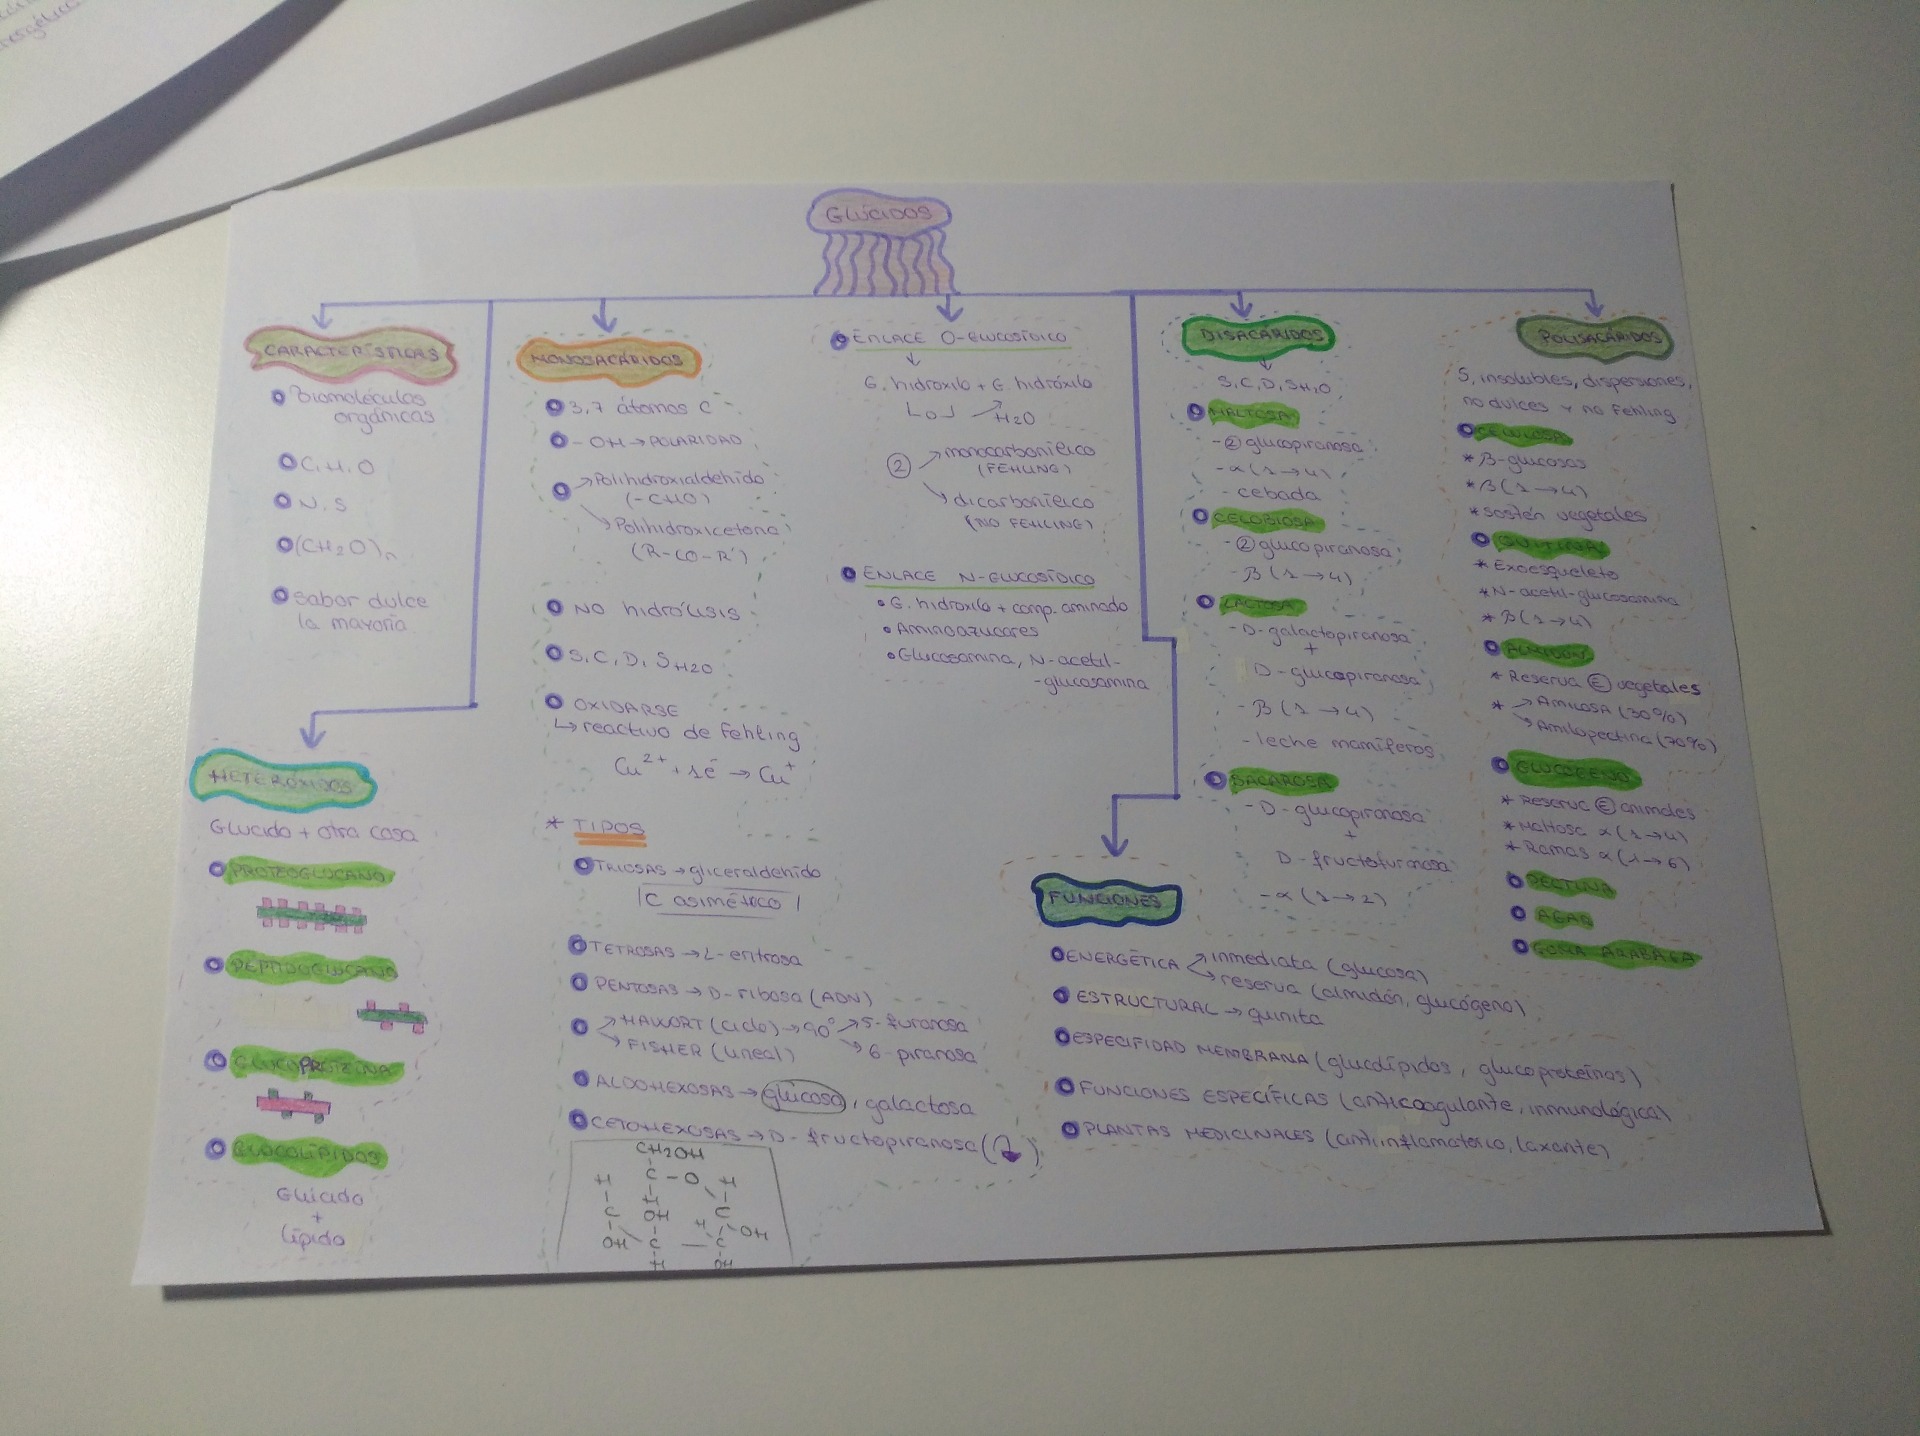 GLÚCIDOS
CARACTERÍSTICAS
Biomoléculas
orgánicas
C, H, O
N, S
(CH2O)n
Sabor dulce
la mayoría
HETERÓXIDOS
Glucido + otra cosa
PROTEOGLUCANO
PEPTIDOGLUCANO
GLUCOPROTEINA
GLUCOLÍPIDOS
Glúcido
+
Lípido
MONOSACÁRIDOS
3, 7 átomos C
- OH → POLARIDAD
→ Polihidroxialdehido
(-CHO)
↘ Polihidroxicetona
(R-CO-R')
NO hidrólisis
S, C, D, S H2O
OXIDARSE
↳ reactivo de Fehling
Cu2+ + 1e- → Cu+
* TIPOS
TRIOSAS → gliceraldehido
C asimétrico
TETROSAS → L-eritrosa
PENTOSAS → D-ribosa (ADN)
↗ HAWORT (Ciclo) → 90° ↗ 5-furanosa
↘ FISHER (lineal) ↘ 6-piranosa
ALDOHEXOSAS → glucosa, galactosa
CETOHEXOSAS → D-fructopiranosa (↴)
CH2OH
H C - O H
H
C OH C
H OH
OH C — C
H OH
ENLACE O-GLUCOSÍDICO
↓
G. hidroxilo + G. hidróxilo
└ O ┘ → H2O
② ↗ monocarbonílico
(FEHLING)
↘ dicarbonílico
(NO FEHLING)
ENLACE N-GLUCOSÍDICO
• G. hidroxilo + comp. aminado
• Aminoazucares
• Glucosamina, N-acetil-
-glucosamina
DISACÁRIDOS
↓
S, C, D, S H2O
MALTOSA
- ② glucopiranosa
- α (1 → 4)
- cebada
CELOBIOSA
- ② glucopiranosa
- β (1 → 4)
LACTOSA
- D-galactopiranosa
+
D-glucopiranosa
- β (1 → 4)
- leche mamíferos
SACAROSA
- D-glucopiranosa
+
D-fructofuranosa
- α (1 → 2)
FUNCIONES
ENERGÉTICA ↗ inmediata (glucosa)
↘ reserva (almidón, glucógeno)
ESTRUCTURAL → quinita
ESPECIFIDAD MEMBRANA (glucolípidos, glucoproteínas)
FUNCIONES ESPECÍFICAS (anticoagulante, inmunológica)
PLANTAS MEDICINALES (antiinflamatorio, laxante)
POLISACÁRIDOS
S, insolubles, dispersiones,
no dulces y no Fehling
CELULOSA
* β-glucosas
* β (1 → 4)
* sostén vegetales
QUITINA
* Exoesqueleto
* N-acetil-glucosamina
* β (1 → 4)
ALMIDÓN
* Reserva Ⓔ vegetales
* → Amilosa (30%)
↘ Amilopectina (70%)
GLUCÓGENO
* Reserva Ⓔ animales
* Maltosa α (1 → 4)
* Ramas α (1 → 6)
PECTINA
AGAR
GOMA ARÁBIGA